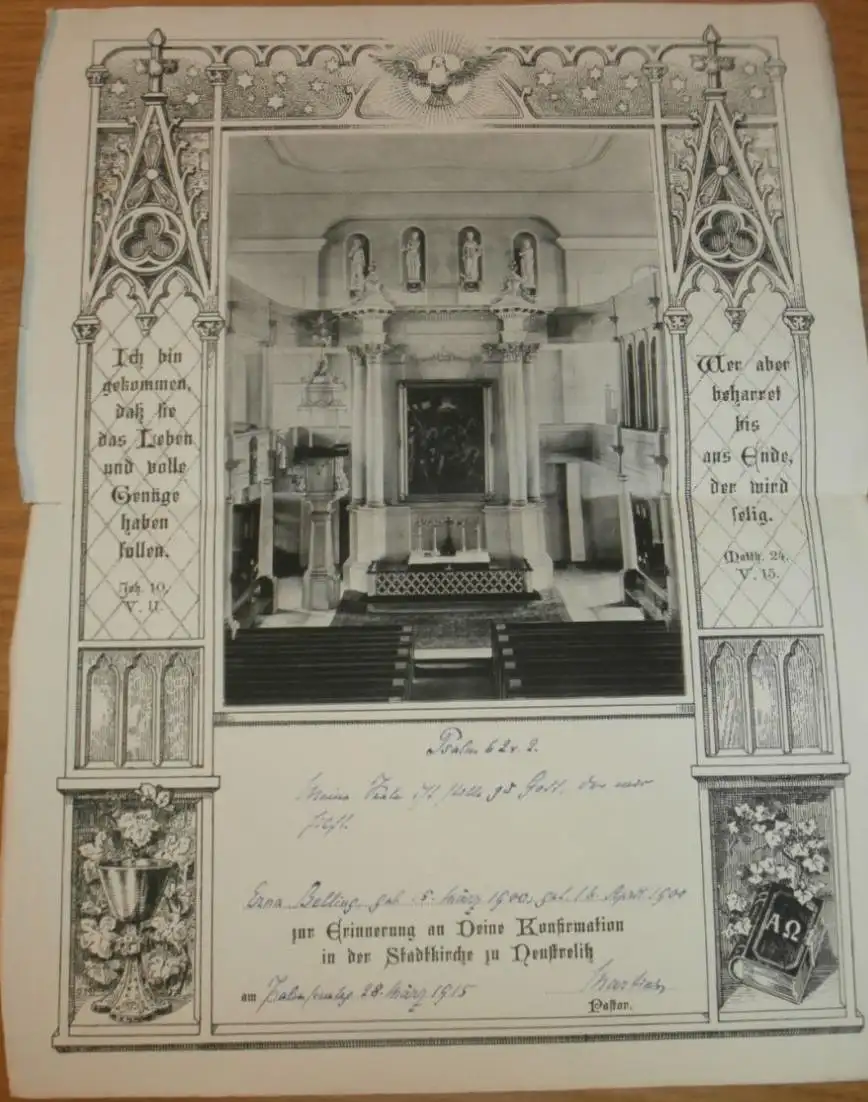 Ich bin
gekommen,
daß sie
das Leben
und volle
Genüge
haben
sollen.
Joh. 10,
V. 11.
Wer aber
beharret
bis
ans Ende,
der wird
selig.
Matth. 24,
V. 13.
Psalm 62 v. 2.
Meine Seele ist stille zu Gott, der mir
hilft.
Erna Belling geb. 5. März 1900, get. 16. April 1900
zur Erinnerung an Deine Konfirmation
in der Stadtkirche zu Neustrelitz
am Palmsonntag 28. März 1915
Pastor.
ΑΩ